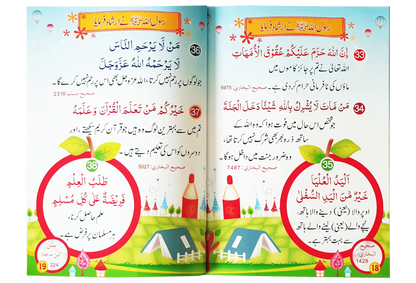 رسول اللہ ﷺ نے ارشاد فرمایا
33
إِنَّ اللّٰهَ حَرَّمَ عَلَيْكُمْ عُقُوْقَ الْأُمَّهَاتِ
اللہ تعالیٰ نے تم پر جائز کاموں میں
ماؤں کی نافرمانی حرام کردی ہے۔
صحیح البخاری: 5975
34
مَنْ مَاتَ لَا يُشْرِكُ بِاللّٰهِ شَيْئًا دَخَلَ الْجَنَّةَ
جو شخص اس حال میں فوت ہوا کہ وہ اللہ کے
ساتھ ذرہ بھر بھی شرک نہیں کرتا تھا،
وہ ضرور جنت میں داخل ہوگا۔
صحیح البخاری: 7487
35
اَلْيَدُ الْعُلْيَا
خَيْرٌ مِّنَ الْيَدِ السُّفْلٰى
اوپر والا (یعنی) دینے والا ہاتھ،
نیچے والے (یعنی) لینے والے ہاتھ
سے بہت بہتر ہے۔
صحیح
البخاری:
1428
18
رسول اللہ ﷺ نے ارشاد فرمایا
36
مَنْ لَا يَرْحَمِ النَّاسَ
لَا يَرْحَمْهُ اللّٰهُ عَزَّوَجَلَّ
جو لوگوں پر رحم نہیں کرتا، اللہ عزوجل بھی اس پر رحم نہیں کرے گا۔
صحیح مسلم: 2319
37
خَيْرُكُمْ مَنْ تَعَلَّمَ الْقُرْآنَ وَعَلَّمَهُ
تم میں سے بہترین لوگ وہ ہیں جو قرآن کریم سیکھتے، اور
دوسروں کو اس کی تعلیم دیتے ہیں۔
صحیح البخاری: 5027
38
طَلَبُ الْعِلْمِ
فَرِيْضَةٌ عَلٰى كُلِّ مُسْلِمٍ
علم حاصل کرنا،
ہر مسلمان پر فرض ہے۔
سنن
ابن ماجہ:
224
19